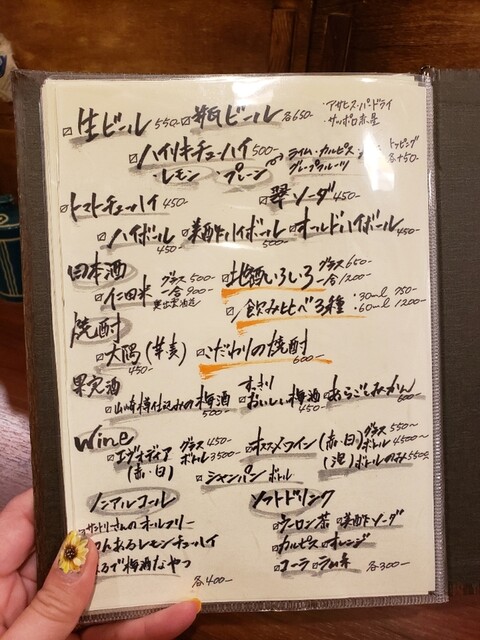 生ビール 550- 瓶ビール 各650 ・アサヒスーパードライ
・サッポロ赤星
ハイリキチューハイ 500- ライム・カルピス・ トッピング
・レモン ・プレーン グレープフルーツ 各+50-
トマトチューハイ 450- 翠ソーダ 450-
ハイボール 450 美酢ハイボール 500 オールドハイボール 450-
日本酒 グラス 500- 地酒いろいろ グラス 650-
仁田米 一合 900- 一合 1200-
飲み比べ3種 ・30ml 750-
・60ml 1200-
焼酎
大隅(芋麦) 450- こだわりの焼酎 600-
果実酒 すっきり
山崎樽仕込みの梅酒 500- おいしい梅酒 450- あらごしみかん 600-
Wine グラス 450- オススメワイン(赤・白) グラス 550~
エヴォディア ボトル 3500- ボトル 4500~
(赤・白) (泡)ボトルのみ 5500~
シャンパン ボトル
ノンアルコール ソフトドリンク
サントリーさんのオールフリー ウーロン茶 美酢ソーダ
のんあるレモンチューハイ カルピス オレンジ
まるで梅酒なやつ コーラ ラムネ 各300-
各400-